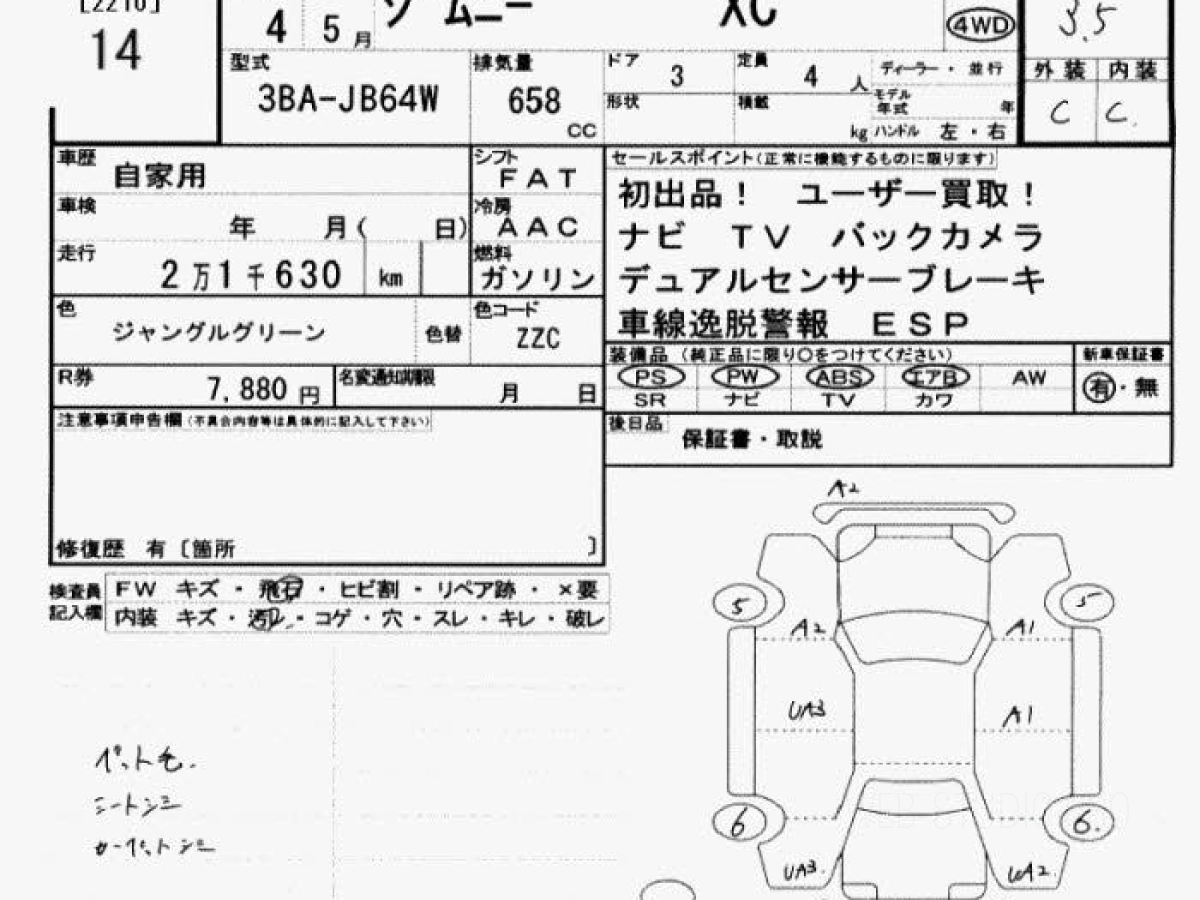 [2210]
14
4 5月
ジムニー XC
4WD
3.5
型式
3BA-JB64W
排気量
658
CC
ドア
3
定員
4人
ディーラー・並行
形状
積載
kg
モデル年式 年
ハンドル 左・右
外装 内装
C C.
車歴
自家用
シフト
FAT
車検
年 月( 日)
冷房
AAC
走行
2万1千630 km
燃料
ガソリン
色
ジャングルグリーン
色替
色コード
ZZC
R券
7,880円
名変通知期限
月 日
セールスポイント(正常に機能するものに限ります)
初出品! ユーザー買取!
ナビ TV バックカメラ
デュアルセンサーブレーキ
車線逸脱警報 ESP
装備品(純正品に限り○をつけてください)
新車保証書
PS PW ABS エアB AW
SR ナビ TV カワ
有・無
後日品
保証書・取説
注意事項申告欄(不具合内容等は具体的に記入して下さい)
修復歴 有〔箇所 〕
検査員記入欄
FW キズ・飛石・ヒビ割・リペア跡・×要
内装 キズ・汚れ・コゲ・穴・スレ・キレ・破レ
ペット毛.
シートシミ
カーペットシミ
A2
5 5
A2 A1
UA3 A1
6 6.
UA3. UA2